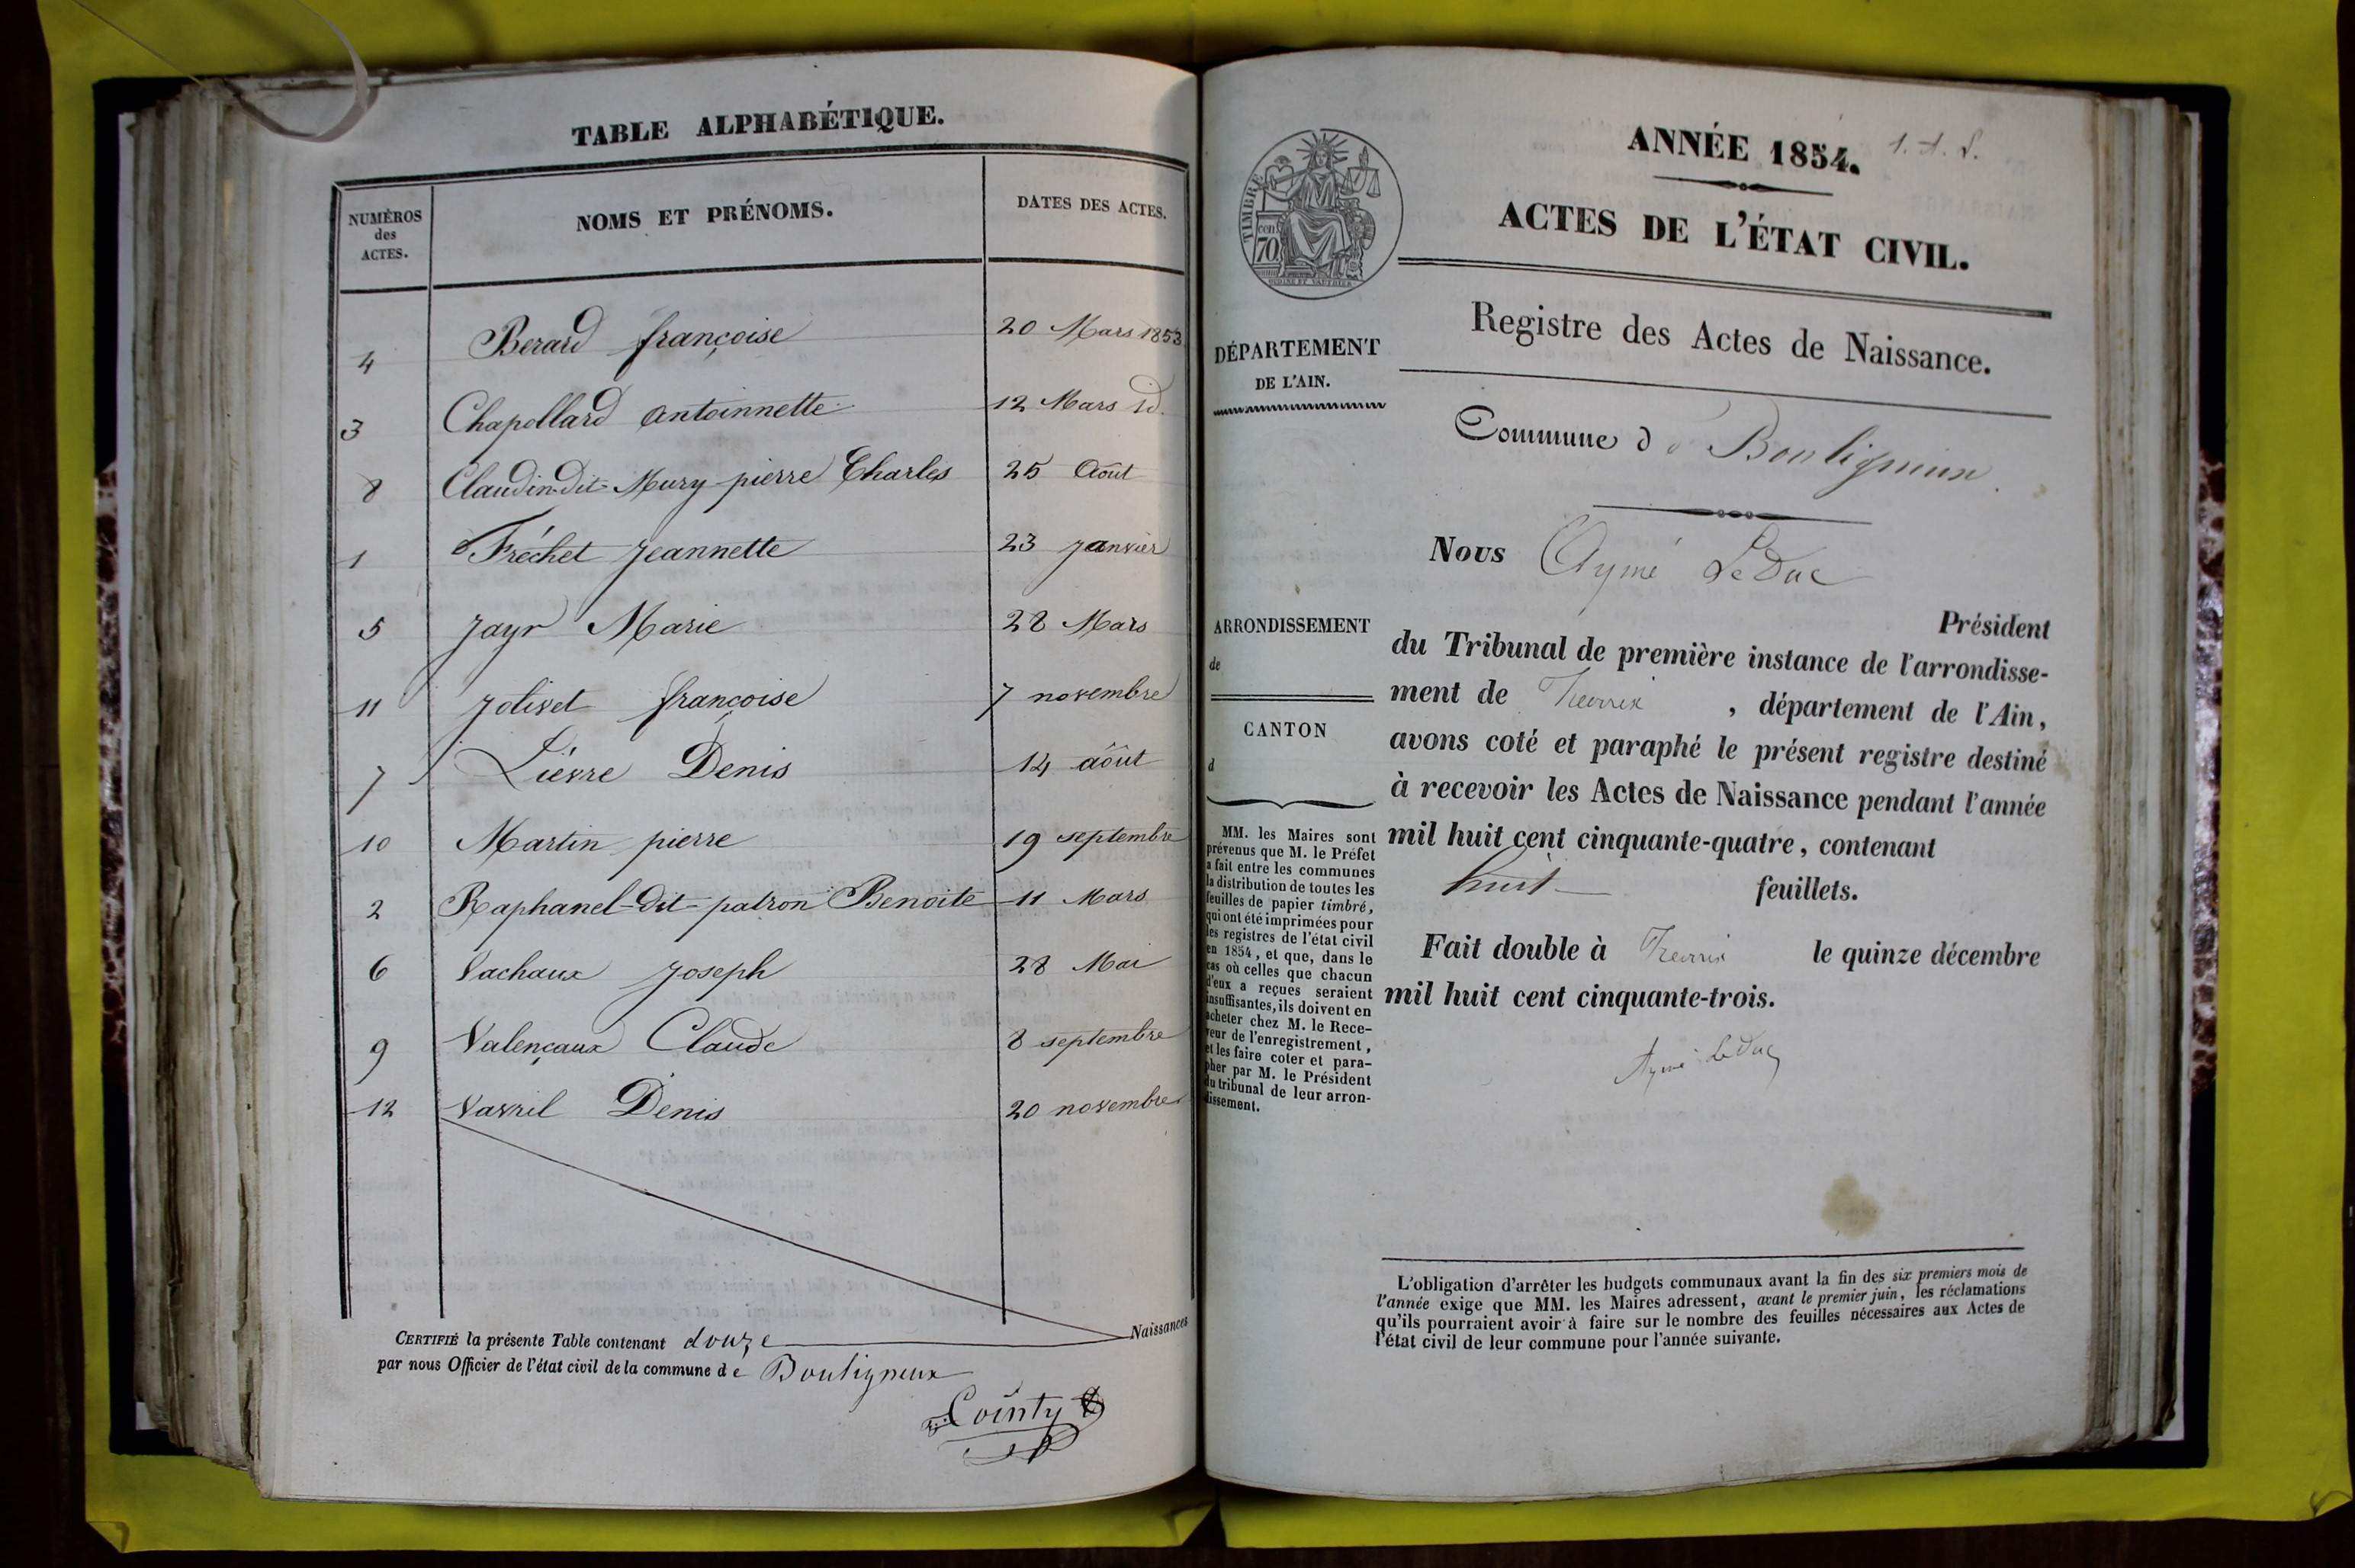 TABLE ALPHABÉTIQUE.
NUMÉROS des ACTES.
NOMS ET PRÉNOMS.
DATES DES ACTES.
4 Berard françoise 20 Mars 1853
3 Chapollard antoinnette 12 Mars id.
8 Claudin-dit-Mury pierre Charles 25 Août
1 Fréchet Jeannette 23 Janvier
5 Jayr Marie 28 Mars
11 Jolivet françoise 7 novembre
7 Lièvre Denis 14 août
10 Martin pierre 19 septembre
2 Raphanel-dit-patron Benoite 11 Mars
6 Vachaux Joseph 28 Mai
9 Valençaux Claude 8 septembre
12 Vavril Denis 20 novembre
CERTIFIÉ la présente Table contenant douze Naissances
par nous Officier de l'état civil de la commune de Bouligneux
Cointy
ANNÉE 1854.
ACTES DE L'ÉTAT CIVIL.
TIMBRE
cen
70
Registre des Actes de Naissance.
DÉPARTEMENT
DE L'AIN.
Commune de Bouligneux.
Nous Aymé LeDuc
Président
du Tribunal de première instance de l'arrondisse-
ment de Trévoux, département de l'Ain,
avons coté et paraphé le présent registre destiné
à recevoir les Actes de Naissance pendant l'année
mil huit cent cinquante-quatre, contenant
huit feuillets.
Fait double à Trévoux le quinze décembre
mil huit cent cinquante-trois.
Aymé LeDuc
ARRONDISSEMENT
de
CANTON
d
MM. les Maires sont
prévenus que M. le Préfet
a fait entre les communes
la distribution de toutes les
feuilles de papier timbré,
qui ont été imprimées pour
les registres de l'état civil
en 1854, et que, dans le
cas où celles que chacun
d'eux a reçues seraient
insuffisantes, ils doivent en
acheter chez M. le Rece-
veur de l'enregistrement,
et les faire coter et para-
pher par M. le Président
du tribunal de leur arron-
dissement.
L'obligation d'arrêter les budgets communaux avant la fin des six premiers mois de
l'année exige que MM. les Maires adressent, avant le premier juin, les réclamations
qu'ils pourraient avoir à faire sur le nombre des feuilles nécessaires aux Actes de
l'état civil de leur commune pour l'année suivante.